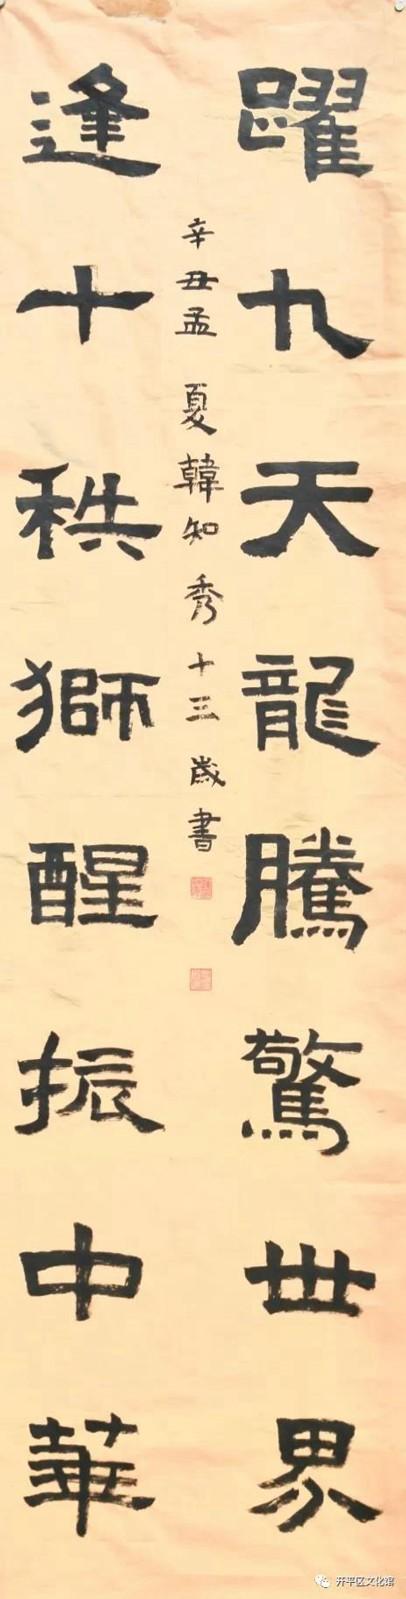 躍九天龍騰驚世界
逢十秩獅醒振中華
辛丑孟夏韓知秀十三歲書
开平区文化馆